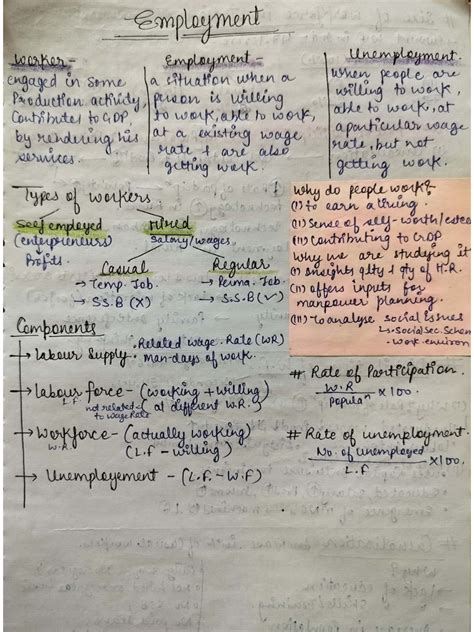 Employment
Worker -
engaged in some
Production activity,
Contributes to GDP,
by rendering his
services.
Employment
a situation when a
person is willing
to work, able to work,
at a existing wage
rate & are also
getting work.
Unemployment
when people are
willing to work,
able to work, at
a particular wage
rate, but not
getting work.
Types of workers
Self employed
(enterpreneurs)
Profits.
Hired
Salary/wages
Casual
→ Temp. Job.
→ S.S.B (X)
Regular
→ Perma. Job.
→ S.S.B (✓)
Why do people work?
(I) to earn a living.
(II) Sense of self-worth/estee
(III) Contributing to GDP
Why we are studying it
(I) Insights qlty & qty of H.R.
(II) offers inputs for
manpower planning.
(III) To analyse social issues
↳ Social Sec. Schem
- Work environ
Components
→ Labour Supply - Related wage Rate (WR)
man-days of work.
→ Labour force - (working + willing)
L.F. not related to Wage Rate (at different W.R.)
→ Workforce - (actually working)
W.R (L.F - willing)
→ Unemployement - (L.F - W.F)
# Rate of Participation.
W.R / Populaⁿ × 100.
# Rate of unemployment.
No. of unemployed / L.F × 100.